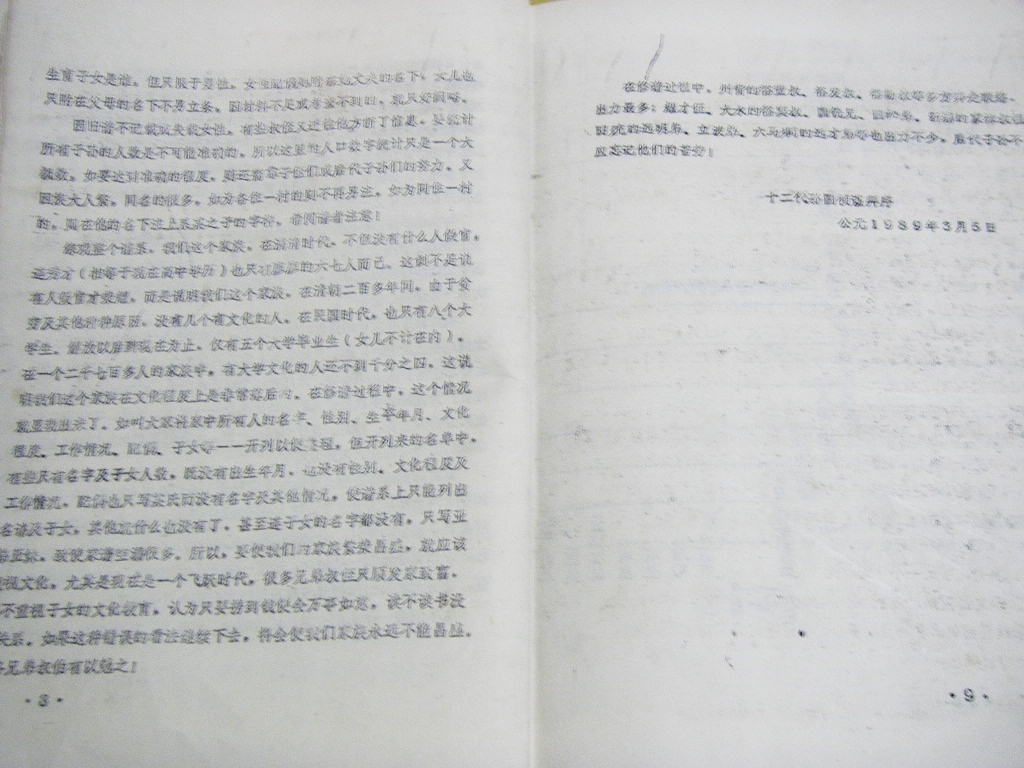 生育子女是谁。但只限于男性。女性配偶则附在她丈夫的名下。女儿也
只附在父母的名下不另立条。因材料不足或考查不到的，就只好阙略。
因旧谱不记载或失载女性。有些叔伯又迁往他方断了信息。要统计
所有子孙的人数是不可能准确的。所以这里的人口数字统计只是一个大
概数。如要达到准确的程度。则还需待子侄们或后代子孙们的努力。又
因族大人繁。同名的很多。如为各住一村的则不再另注。如为同住一村
的。则在他的名下注上系某之子的字样。希阅谱者注意！
综观整个谱系。我们这个家族。在满清时代。不但没有什么人做官。
连秀才（相等于现在高中学历）也只有寥寥的六七人而已。这倒不是说
有人做官才荣耀。而是说明我们这个家族。在清朝二百多年间。由于贫
穷及其他种种原因。没有几个有文化的人。在民国时代。也只有八个大
学生。解放以后到现在为止。仅有五个大学毕业生（女儿不计在内）。
在一个二千七百多人的家族中。有大学文化的人还不到千分之四。这说
明我们这个家族在文化程度上是非常落后的。在修谱过程中。这个情况
就显现出来了。如叫大家将家中所有人的名字、性别、生卒年月、文化
程度、工作情况、配偶、子女等一一开列以便整理。但开列来的名单中。
有些只有名字及子女人数。既没有出生年月。也没有性别、文化程度及
工作情况。配偶也只写某氏而没有名字及其他情况。使谱系上只能列出
名讳及子女。其他就什么也没有了。甚至连子女的名字都没有。只写亚
致使家谱空漏很多。所以。要使我们的家族繁荣昌盛。就应该
视文化。尤其是现在是一个飞跃时代。很多兄弟叔侄只顾发家致富。
不重视子女的文化教育。认为只要捞到钱便会万事如意。读不读书没
关系。如果这种错误的看法继续下去。将会使我们家族永远不能昌盛。
兄弟叔伯有以勉之！
·8·
在修谱过程中。
出力最多；继才侄、大水的
的远明弟、立波弟、六马
的远才弟等也出力不少。后代子孙不
应忘记他们的苦劳！
十二代孙国
公元1989年3月5日
·9·